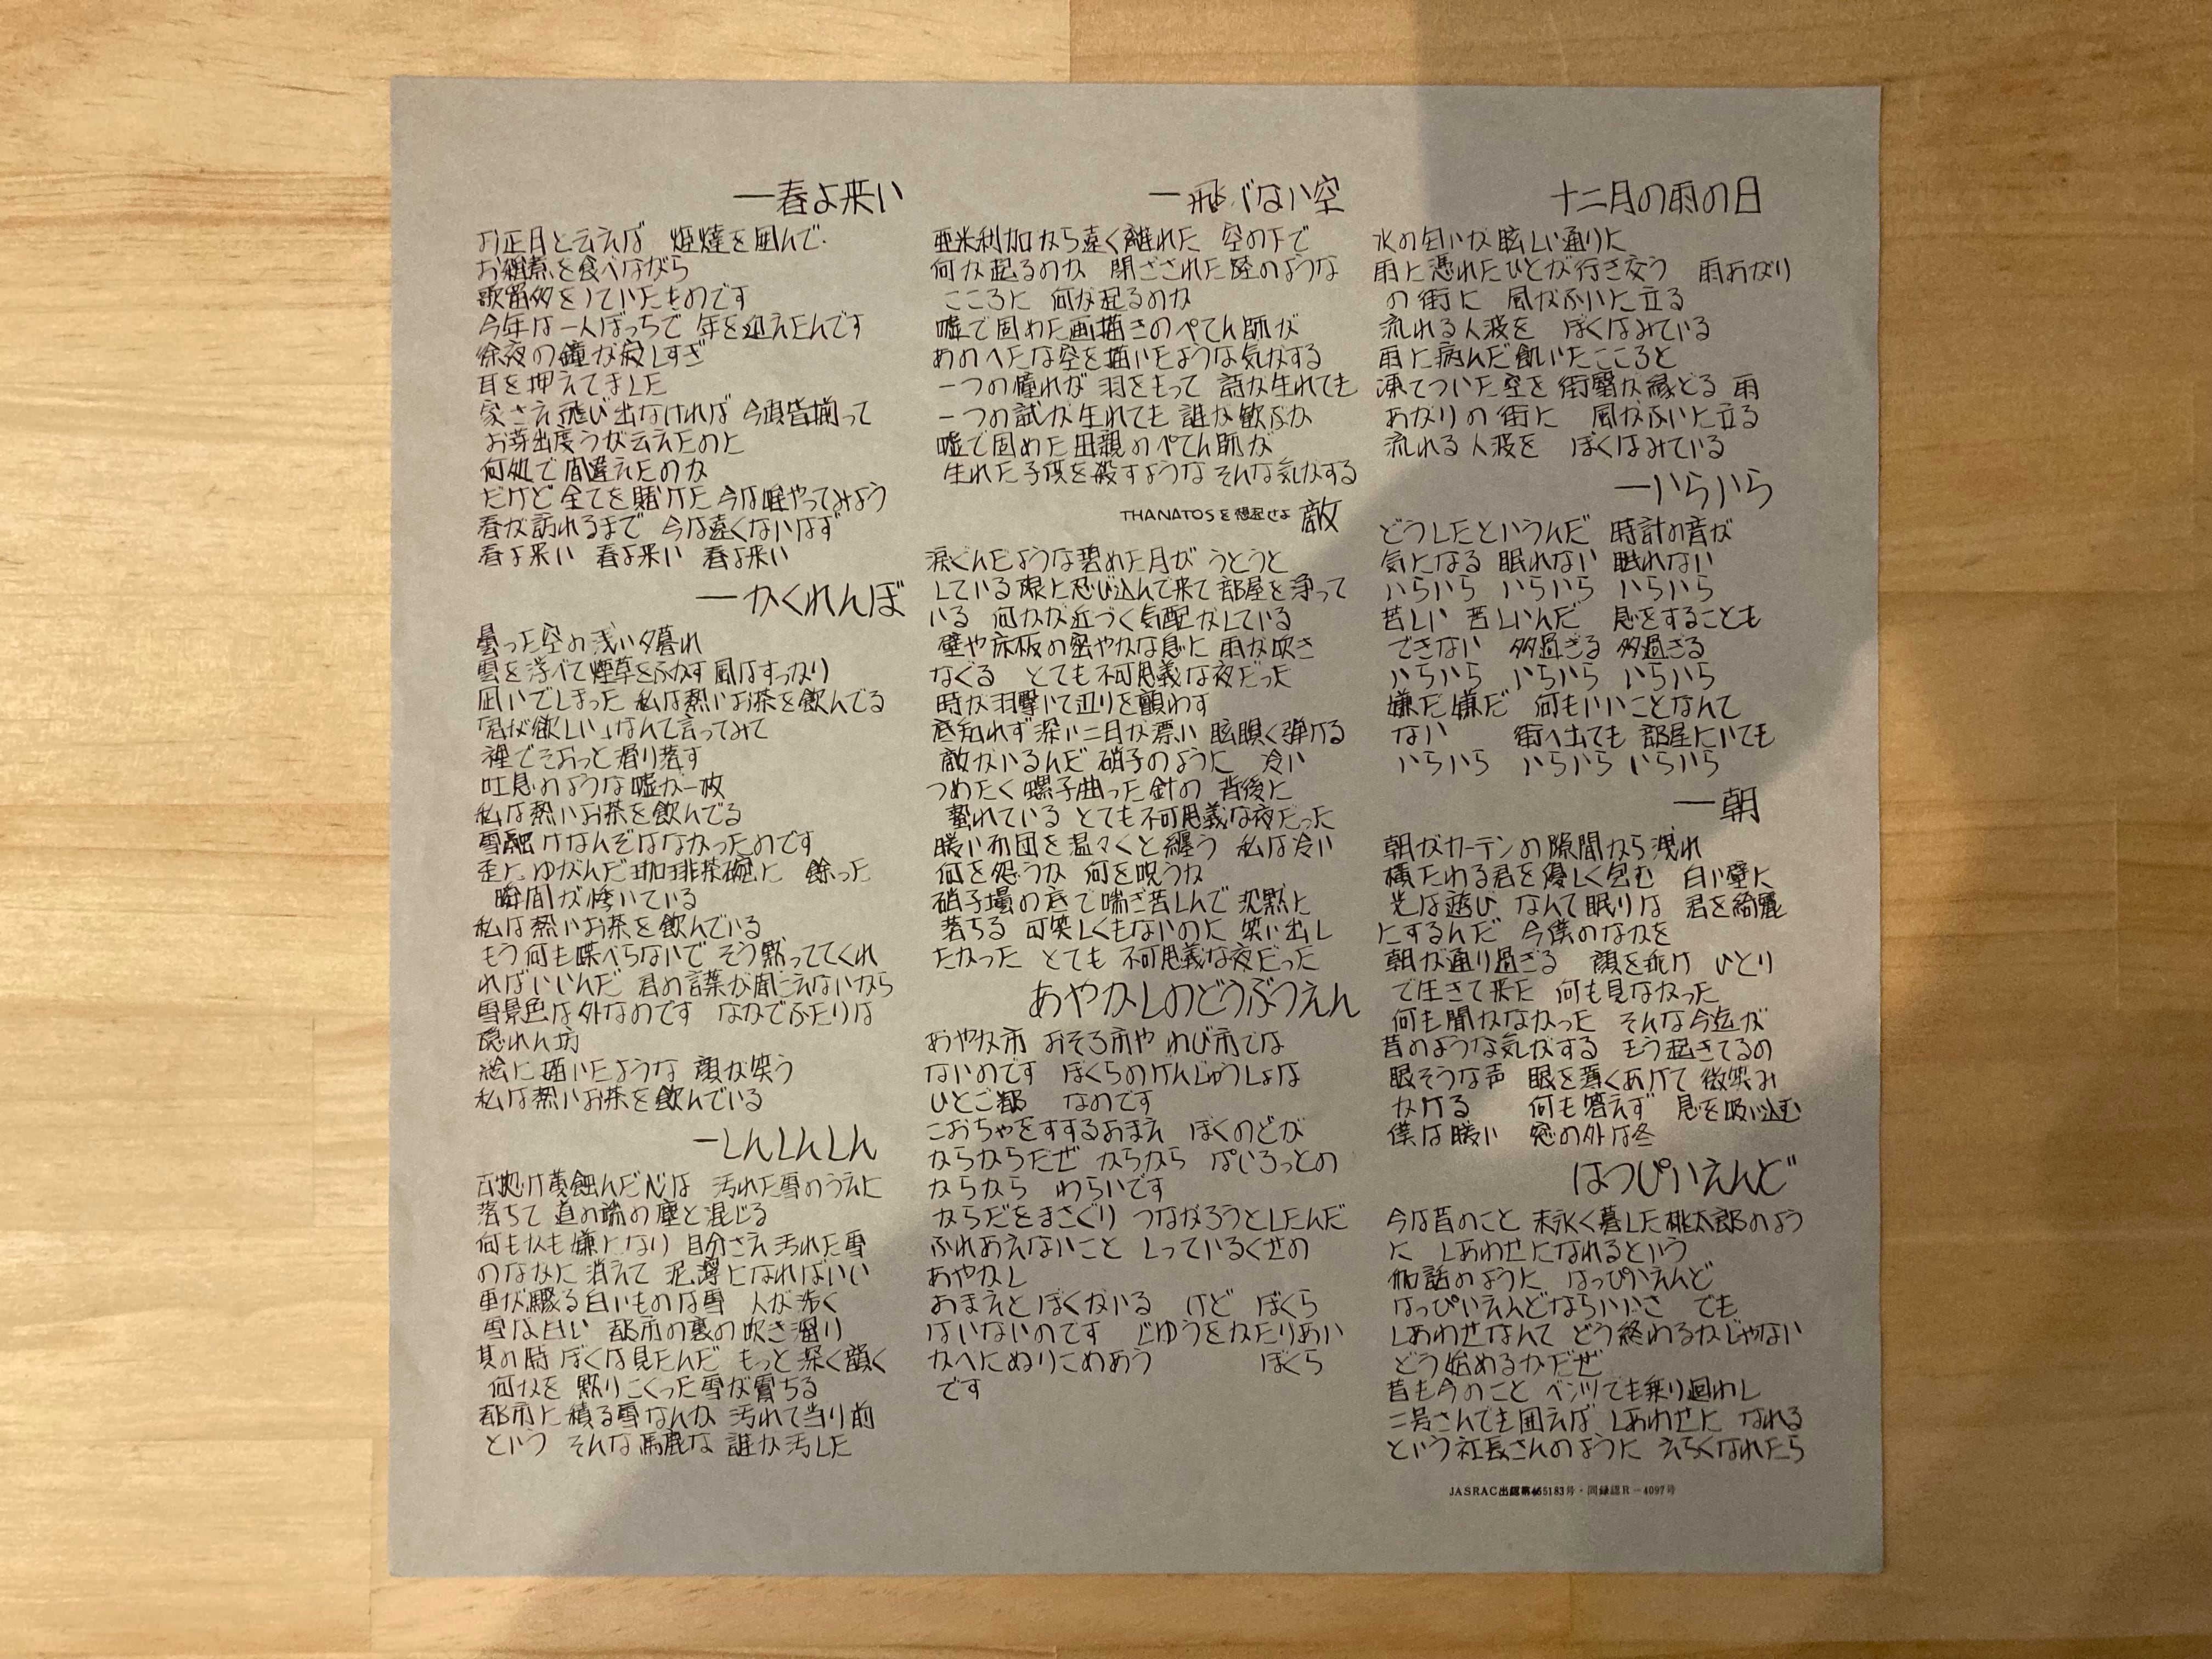 —春よ来い
お正月と云えば 炬燵を囲んで
お雑煮を食べながら
歌留多をしていたものです
今年は一人ぼっちで 年を迎えたんです
除夜の鐘が寂しすぎ
耳を押えてました
家さえ飛び出なければ 今頃皆揃って
お芽出度うが云えたのに
何処で間違えたのか
だけど全てを賭けた 今は唯やってみよう
春が訪れるまで 今は遠くないはず
春よ来い 春よ来い 春よ来い
—かくれんぼ
曇った空の浅い夕暮れ
雲を浮べて煙草をふかす 風はすっかり
凪いでしまった 私は熱いお茶を飲んでる
「君が欲しい」なんて言ってみて
裡でそおっと滑り落す
吐息のような嘘が一枚
私は熱いお茶を飲んでる
雪融けなんぞはなかったのです
歪にゆがんだ珈琲茶碗に 餘った
瞬間が悸いている
私は熱いお茶を飲んでいる
もう何も喋べらないで そう黙っててくれ
ればいいんだ 君の言葉が聞こえないから
雪景色は外なのです なかでふたりは
隠れん坊
絵に描いたような 顔が笑う
私は熱いお茶を飲んでいる
—しんしんしん
古惚け黄蝕んだ心は 汚れた雪のうえに
落ちて 道の端の塵と混じる
何もかも嫌になり 自分さえ汚れた雪
のなかに消えて 泥濘になればいい
車が驟る白いものは雪 人が歩く
雪は白い 都市の裏の吹き溜り
其の時 ぼくは見たんだ もっと深く韻く
何かを 黙りこくった雪が霄ちる
都市に積る雪なんか 汚れて当り前
という そんな馬鹿な 誰が汚した
—飛べない空
亜米利加から遠く離れた 空の下で
何が起るのか 閉ざされた陸のような
こころに 何が起るのか
嘘で固めた画描きのぺてん師が
あのへたな空を描いたような気がする
一つの憧れが 羽をもって 詩が生れても
一つの試が生れても 誰が歓ぶか
嘘で固めた母親のぺてん師が
生れた子供を殺すような そんな気がする
THANATOSを想起せよ 敵
涙ぐんだような碧めた月が うとうと
している眼に忍び込んで来て 部屋を浄って
いる 何かが近づく気配がしている
壁や床板の密やかな息に 雨が吹き
なぐる とても不可思議な夜だった
時が羽撃いて辺りを顫わす
底知れず深い二日が漂い 眩瞑く弾ける
敵がいるんだ 硝子のように 冷い
つめたく螺子曲った針の 背後に
蟄れている とても不可思議な夜だった
暖い布団を温々と纏う 私は冷い
何を怨うか 何を呪うか
硝子場の底で喘ぎ苦しんで 沈黙に
落ちる 可笑しくもないのに 笑い出し
たかった とても 不可思議な夜だった
あやかしのどうぶつえん
あやか市 おそろ市や わび市では
ないのです ぼくらのげんじゅうしょは
ひとご都 なのです
こおちゃをすするおまえ ぼくのどが
からからだぜ からから ぱいろっとの
からから わらいです
からだをまさぐり つながろうとしたんだ
ふれあえないこと しっているくせの
あやかし
おまえとぼくがいる けど ぼくら
はいないのです じゆうをかたりあい
かべにぬりこめあう ぼくら
です
十二月の雨の日
水の匂いが眩しい通りに
雨に憑れたひとが行き交う 雨あがり
の街に 風がふいに立る
流れる人波を ぼくはみている
雨に病んだ飢いたこころと
凍てついた空を 街翳が縁どる 雨
あがりの街に 風がふいに立る
流れる人波を ぼくはみている
—いらいら
どうしたというんだ 時計の音が
気になる 眠れない 眠れない
いらいら いらいら いらいら
苦しい 苦しいんだ 息をすることも
できない 多過ぎる 多過ぎる
いらいら いらいら いらいら
嫌だ嫌だ 何もいいことなんて
ない 街へ出ても 部屋にいても
いらいら いらいら いらいら
—朝
朝がカーテンの隙間から洩れ
横たわる君を優しく包む 白い壁に
光は遊び なんて眠りは 君を綺麗
にするんだ 今僕のなかを
朝が通り過ぎる 顔を妩け ひとり
で生きて来た 何も見なかった
何も聞かなかった そんな今迄が
昔のような気がする もう起きてるの
眠そうな声 眼を薄くあけて 微笑み
かける 何も答えず 息を吸い込む
僕は暖い 窓の外は冬
はっぴいえんど
今は昔のこと 末永く暮した桃太郎のよう
に しあわせになれるという
御話のように はっぴいえんど
はっぴいえんどならいいさ でも
しあわせなんて どう終わるかじゃない
どう始めるかだぜ
昔も今のこと ベンツでも乗り廻わし
二号さんでも囲えば しあわせに なれる
という社長さんのように えらくなれたら
JASRAC出認第465183号・同録認R-4097号